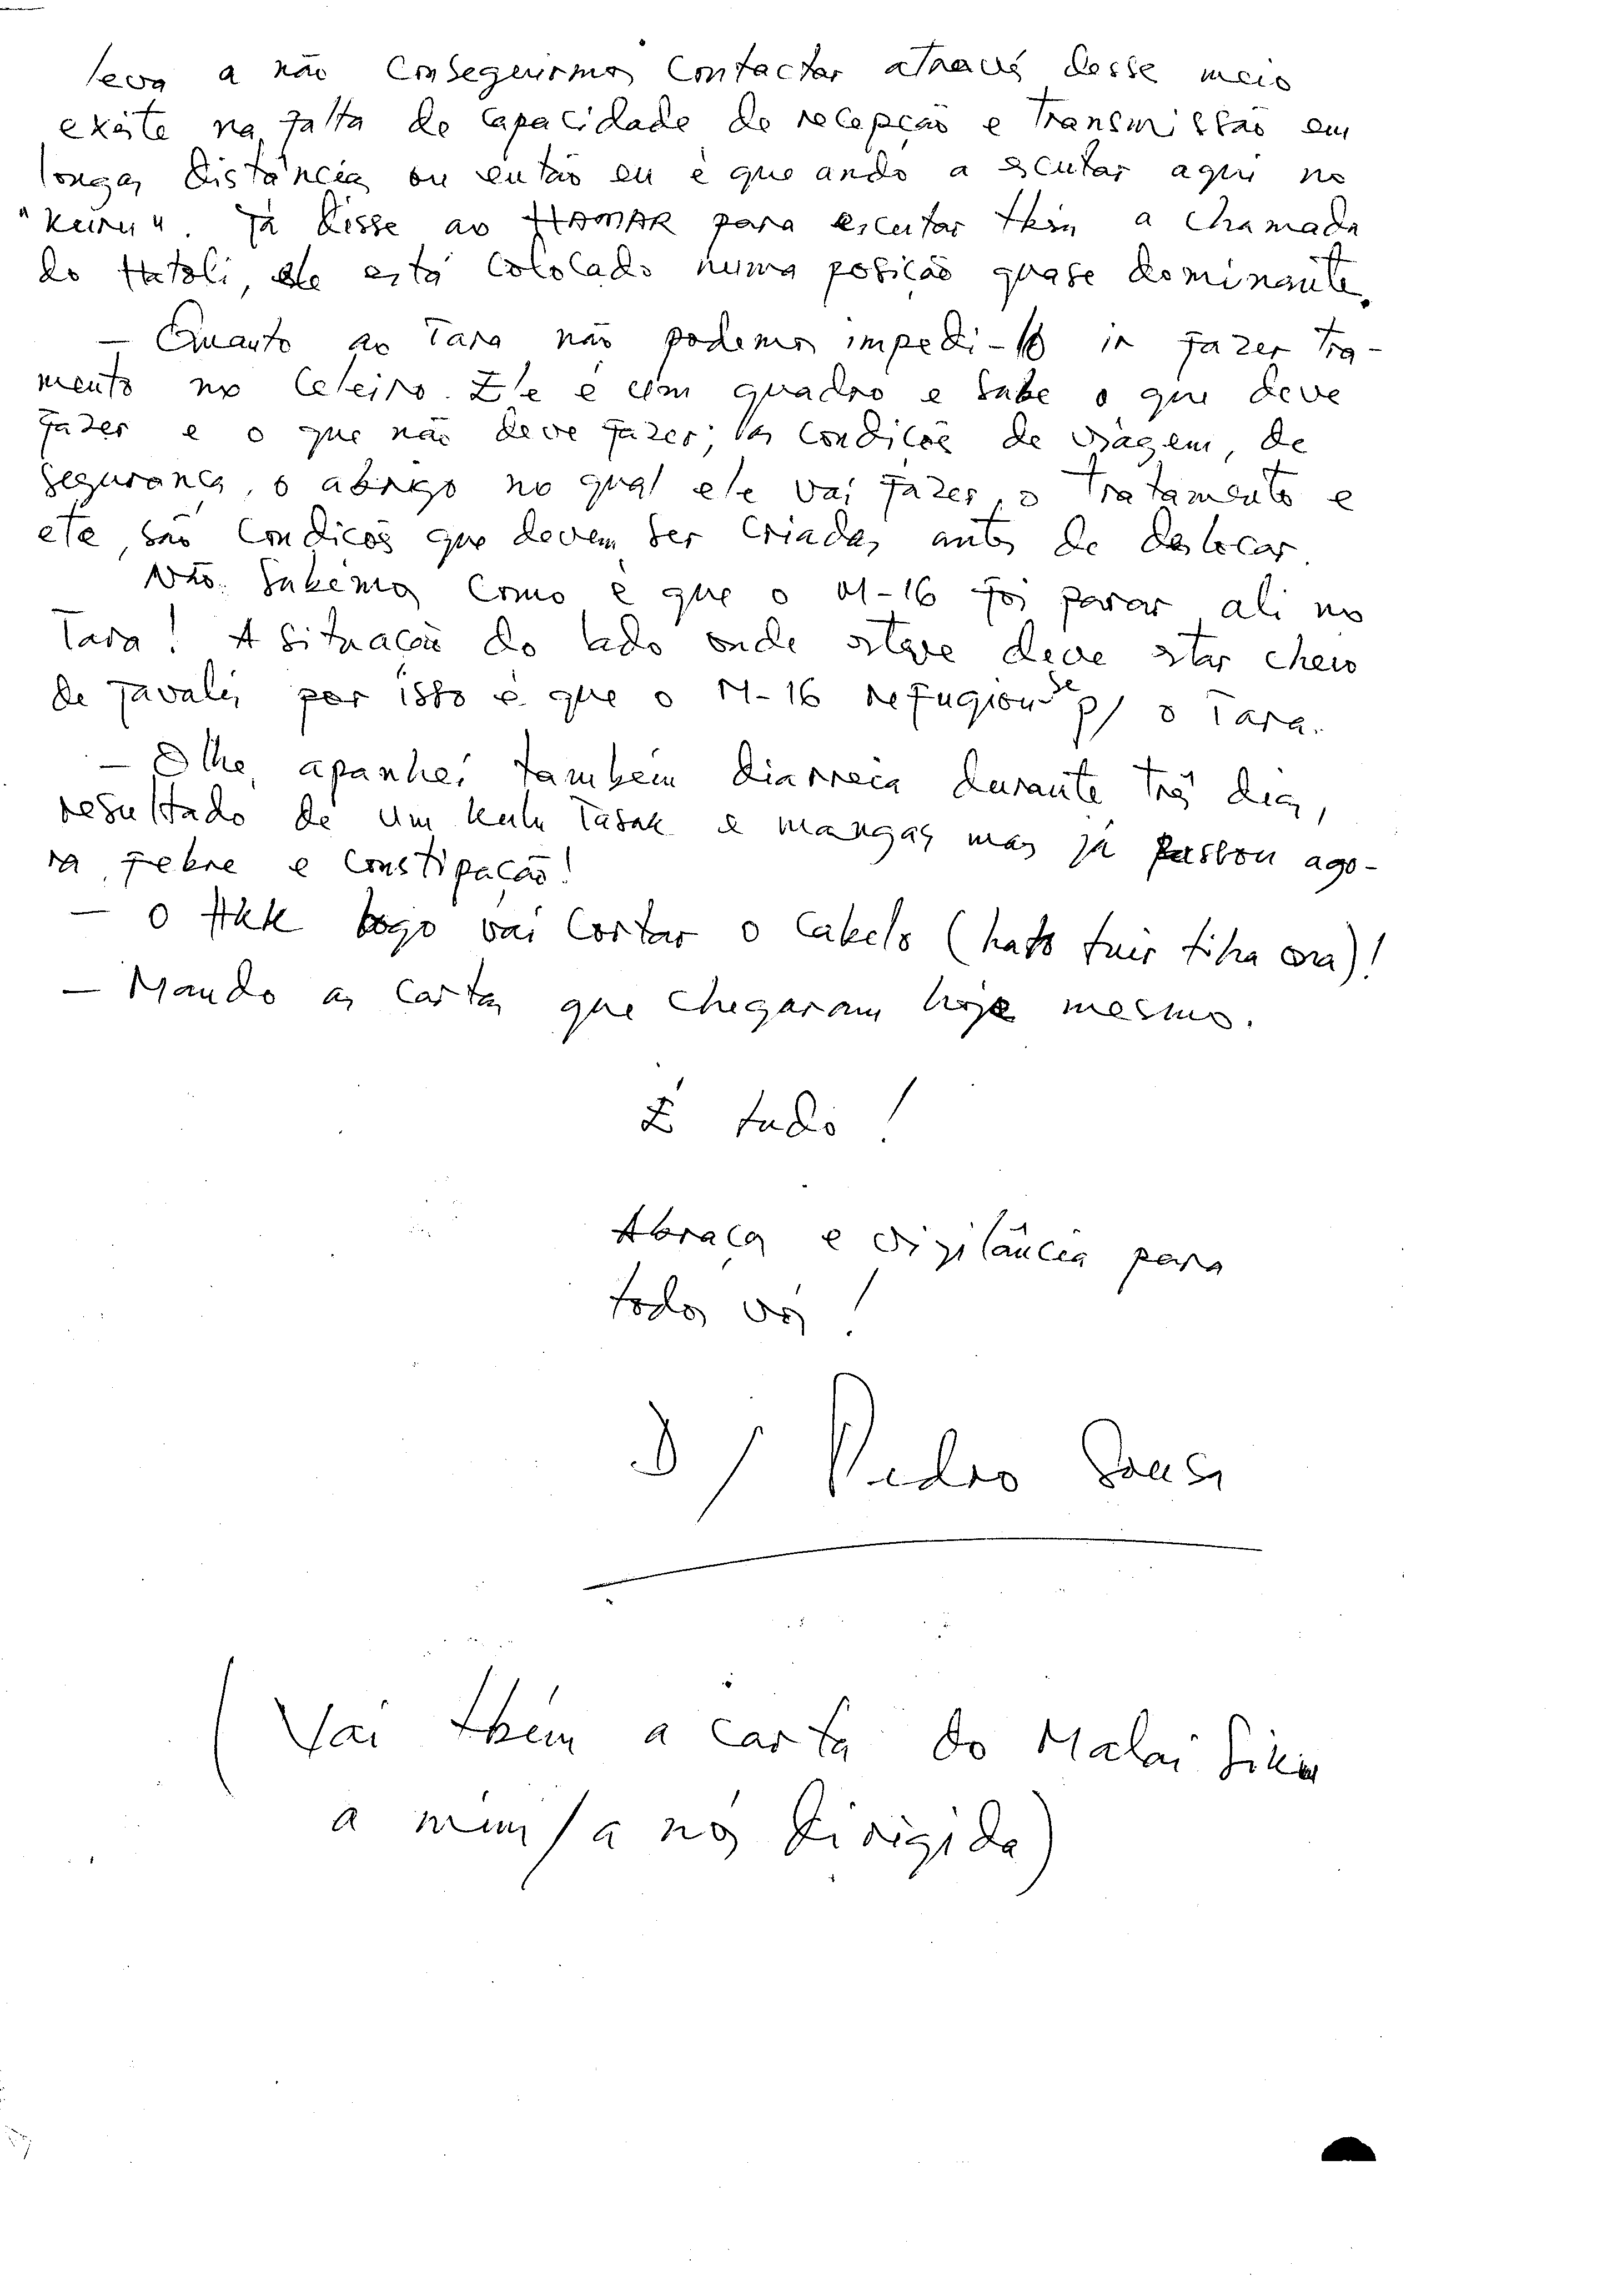 leva a não conseguirmos contactar através desse meio
existe na falta de capacidade de recepção e transmissão em
longas distâncias ou então eu é que ando a escutar aqui no
"Keiru". Já disse ao HAMAR para escutar tbém a chamada
do Hatoli, ele está colocado numa posição quase dominante.
— Quanto ao Tara não podemos impedi-lo ir fazer tra-
mento no Celeiro. Ele é um quadro e sabe o que deve
fazer e o que não deve fazer; as condições de viagem, de
segurança, o abrigo no qual ele vai fazer o tratamento e
etc, são condições que devem ser criadas antes de deslocar.
Não sabemos como é que o M-16 foi parar ali no
Tara! A situação do lado onde esteve deve estar cheio
de javalis por isso é que o M-16 refugiou-se p/ o Tara.
— Olhe, apanhei também diarreia durante três dias,
resultado de um kulu tasak e mangas mas já passou ago-
ra, febre e constipação!
— O logo vai cortar o cabelo (hato fuir tiha ona)!
— Mando as cartas que chegaram hoje mesmo.
É tudo!
Abraços e vigilância para
todos vós!
D/ Pedro Sousa
(Vai tbém a carta do Malai
a mim/a nós dirigida)